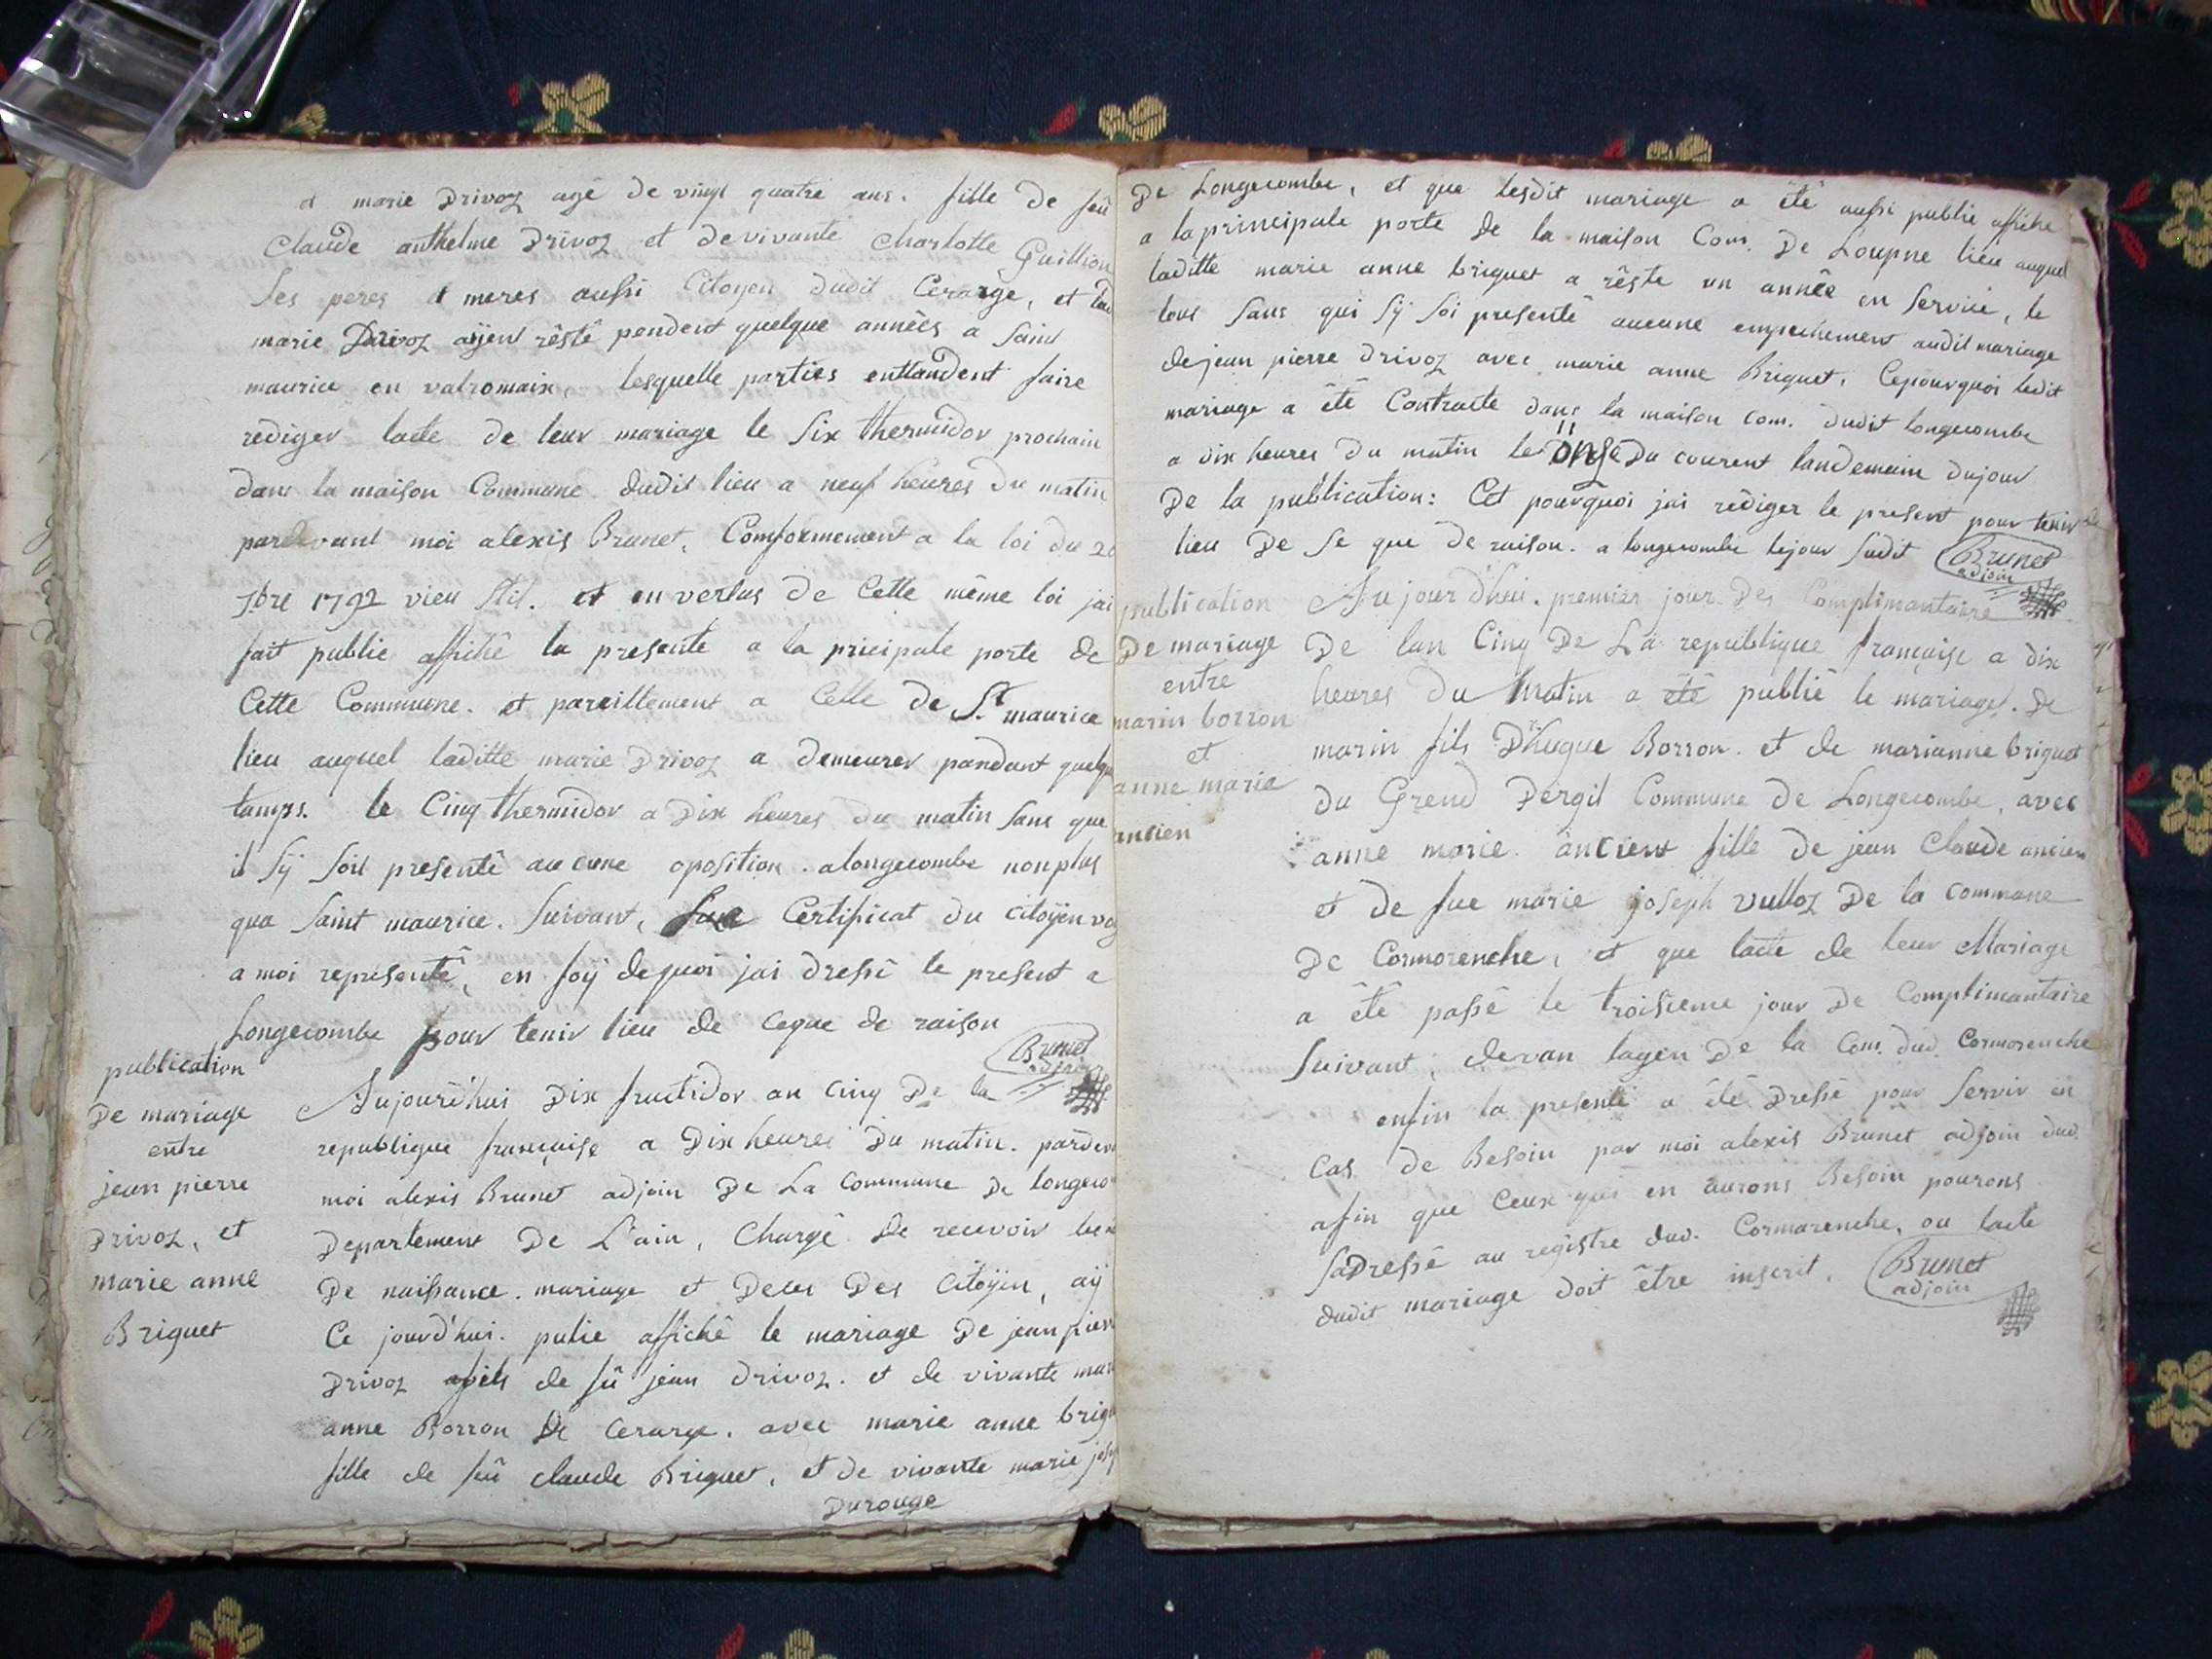 et marie Drivoz agé de vingt quatre ans. fille de feû
Claude anthelme Drivoz et de vivante Charlotte Guillion
ses peres et meres aussi Citoyen dudit Cerarge, et
marie Drivoz aÿent rêsté pendent quelque années a saint
maurice en valromaix, lesquelle parties entandent faire
rediger lacte de leur mariage le six thermidor prochain
dans la maison Commune dudit lieu a neuf heures du matin
pardevant moi alexis Brunet, Comformement a la loi du 20
7bre 1792 vieu stil. et en vertus de Cette même loi jai
fait publie affiché la presente a la pricipale porte de
Cette Commune. et pareillement a Celle de St. maurice
lieu auquel laditte marie Drivoz a demeurer pandant quelque
tamps. le Cinq thermidor a Dix heures du matin sans que
il sÿ soit presenté aucune oposition. a longecombe non plus
qua saint maurice. suivant, Certificat du Citoÿen
a moi representé, en foÿ de quoi jai dressé le present a
Longecombe pour tenir lieu de ceque de raison
Brunet
adjoin
publication
De mariage
entre
jean pierre
Drivoz, et
marie anne
Briguet
Aujourd'hui Dix fructidor an Cinq De la
republique française a Dix heures Du matin. pardev
moi alexis Brunet adjoin De La Commune De longeco
Departement De L'ain, Chargé De recevoir
De naissance. mariage et Deces Des Citoÿen, aÿ
Ce jourd'hui. pulie affiché le mariage De jean pier
Drivoz fils de fû jean Drivoz. et de vivante mari
anne Borron De Cerarge. avec marie anne brigu
fille de feû claude Briguet, et de vivante marie jose
Durouge
De Longecombe, et que lesdit mariage a été aussi publié affiche
a la principale porte de la maison Com. De Loupne lieu auquel
laditte marie anne briguet a rêste un année en service, le
tous sans qui sÿ soi presenté aucune empechement audit mariage
de jean pierre Drivoz avec marie anne Briguet. Cepourquoi ledit
mariage a été Contracte dans la maison com. dudit longecombe
a dix heures du matin le 11 onze Du courent landemain dujour
De la publication: Cet pourquoi jai rediger le present pour tenir
lieu De se que de raison. a longecombe lejour sudit Brunet
adjoin
publication
De mariage
entre
marin borron
et
anne marie
ancien
Aujourd'hui. premier jour Des Complimantaire
De lan Cinq De La republique française a dix
heures du Matin a été publié le mariage. De
marin fils D'hugue Borron. et de marianne briguet
du Grend Dergit Commune De Longecombe, avec
anne marie. ancient fille De jean Claude ancien
et de fue marie joseph vulloz De la commune
De Cormorenche, et que lacte de leur Mariage
a été passé le troisieme jour De Complimantaire
suivant, devan lagen De la Com. dud. Cormorenche
enfin la presente a été Dressé pour servir en
Cas de Besoin par moi alexis Brunet adjoin dud.
afin que Ceux qui en aurons Besoin pourons
saDressé au regîstre dud. Cormarenche, ou lacte
dudit mariage doit être inscrit. Brunet
adjoin